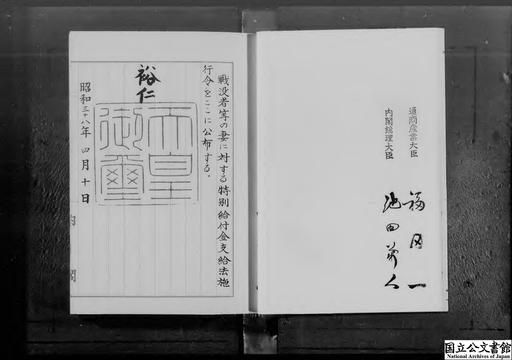 通商産業大臣
福田一
内閣総理大臣
池田勇人
戦没者等の妻に対する特別給付金支給法施
行令をここに公布する。
裕仁
天皇
御璽
昭和三十八年四月十日
内閣
国立公文書館
National Archives of Japan